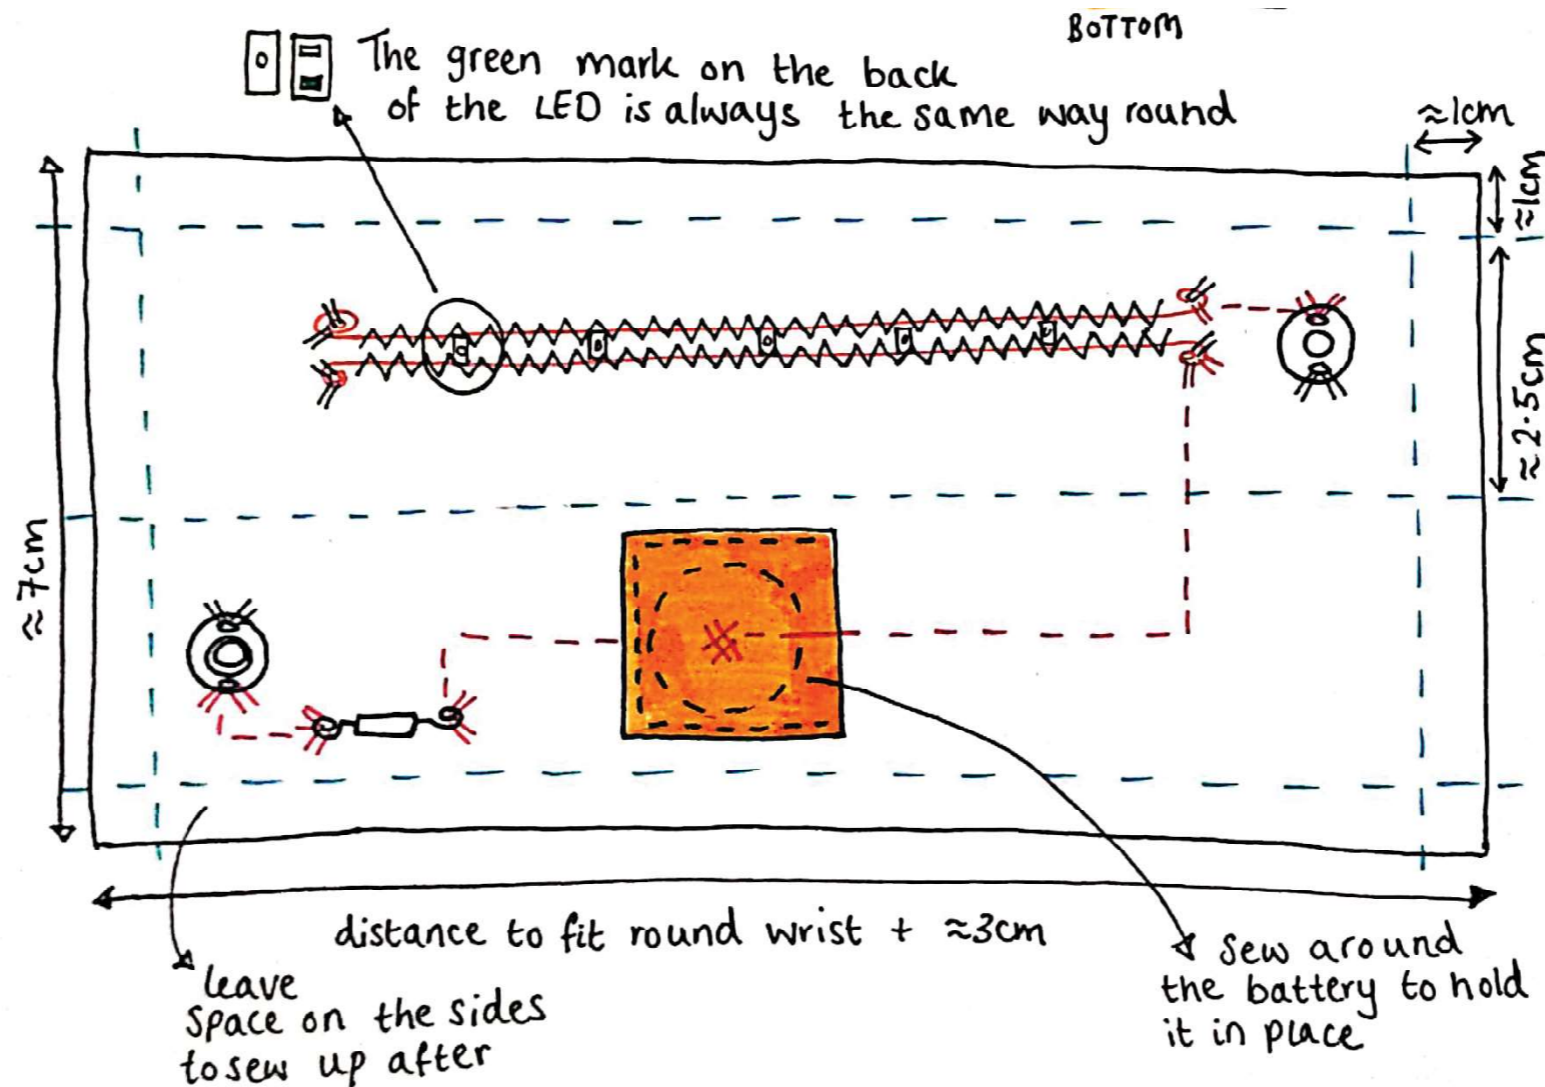 BOTTOM
The green mark on the back
of the LED is always the same way round
≈1cm
≈1cm
≈2.5cm
≈7cm
distance to fit round wrist + ≈3cm
leave
space on the sides
to sew up after
sew around
the battery to hold
it in place